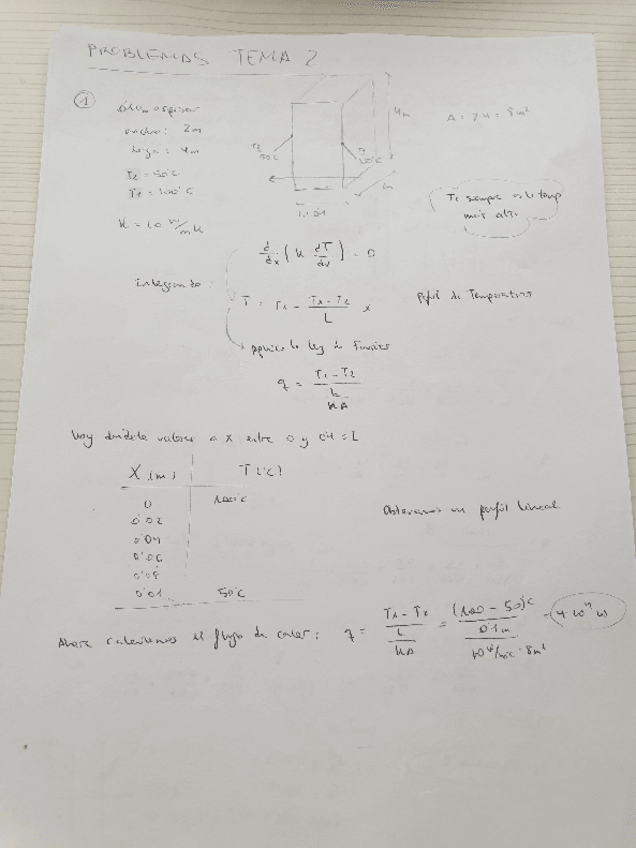 PROBLEMAS TEMA 2
① 0'1m espesor
ancho: 2m
largo: 4m
T2 = 50°C
T1 = 100°C
K = 10 W/mK
T2 50°C
T1 100°C
4m
2m
A = 2·4 = 8m²
T1 siempre es la temp
más alta
d/dx (K dT/dx) = 0
integrando:
T = T1 - (T1 - T2)/L x
Perfil de Temperatura
Aplico la ley de Fourier
q = (T1 - T2)/(L/KA)
Voy dándole valores a x entre 0 y 0'1 = L
X (m) T (°C)
0 100°C
0'02
0'04
0'06
0'08
0'01 50°C
Observamos un perfil lineal
Ahora calculamos el flujo de calor: q = (T1 - T2)/(L/KA) = (100 - 50)°C/(0'1m/10 W/m°C · 8m²) = 4·10⁴ W